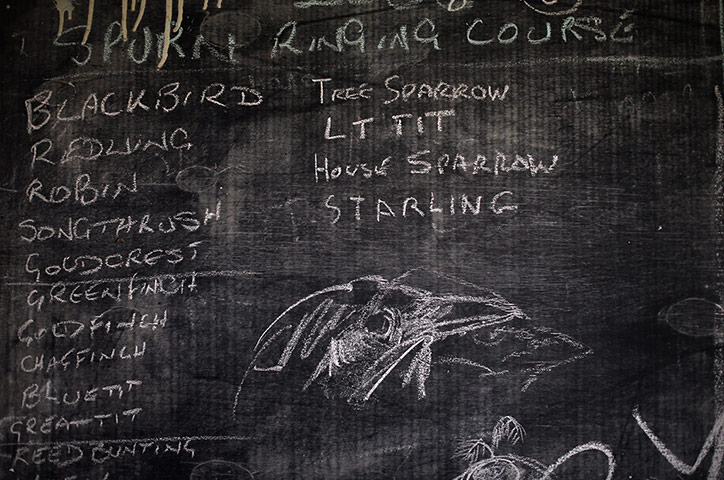 SPURN RINGING COURSE
BLACKBIRD
REDWING
ROBIN
SONGTHRUSH
GOLDCREST
GREENFINCH
GOLDFINCH
CHAFFINCH
BLUETIT
GREATTIT
REED BUNTING
TREE SPARROW
LT TIT
HOUSE SPARROW
STARLING